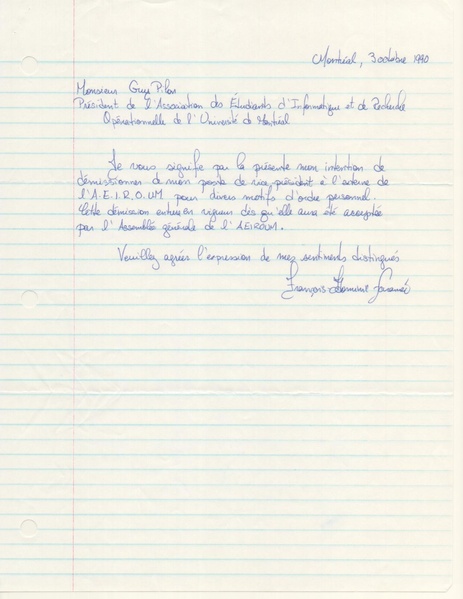 Montréal, 3 octobre 1990
Monsieur Guy
Président de l'Association des Étudiants d'Informatique et de Recherche
Opérationnelle de l'Université de Montréal
Je vous signifie par la présente mon intention de
démissionner de mon poste de vice-président à l'externe de
l'A.E.I.R.O.UM pour divers motifs d'ordre personnel.
Cette démission entrera en vigueur dès qu'elle aura été acceptée
par l'Assemblée générale de l'AEIROUM.
Veuillez agréer l'expression de mes sentiments distingués
François